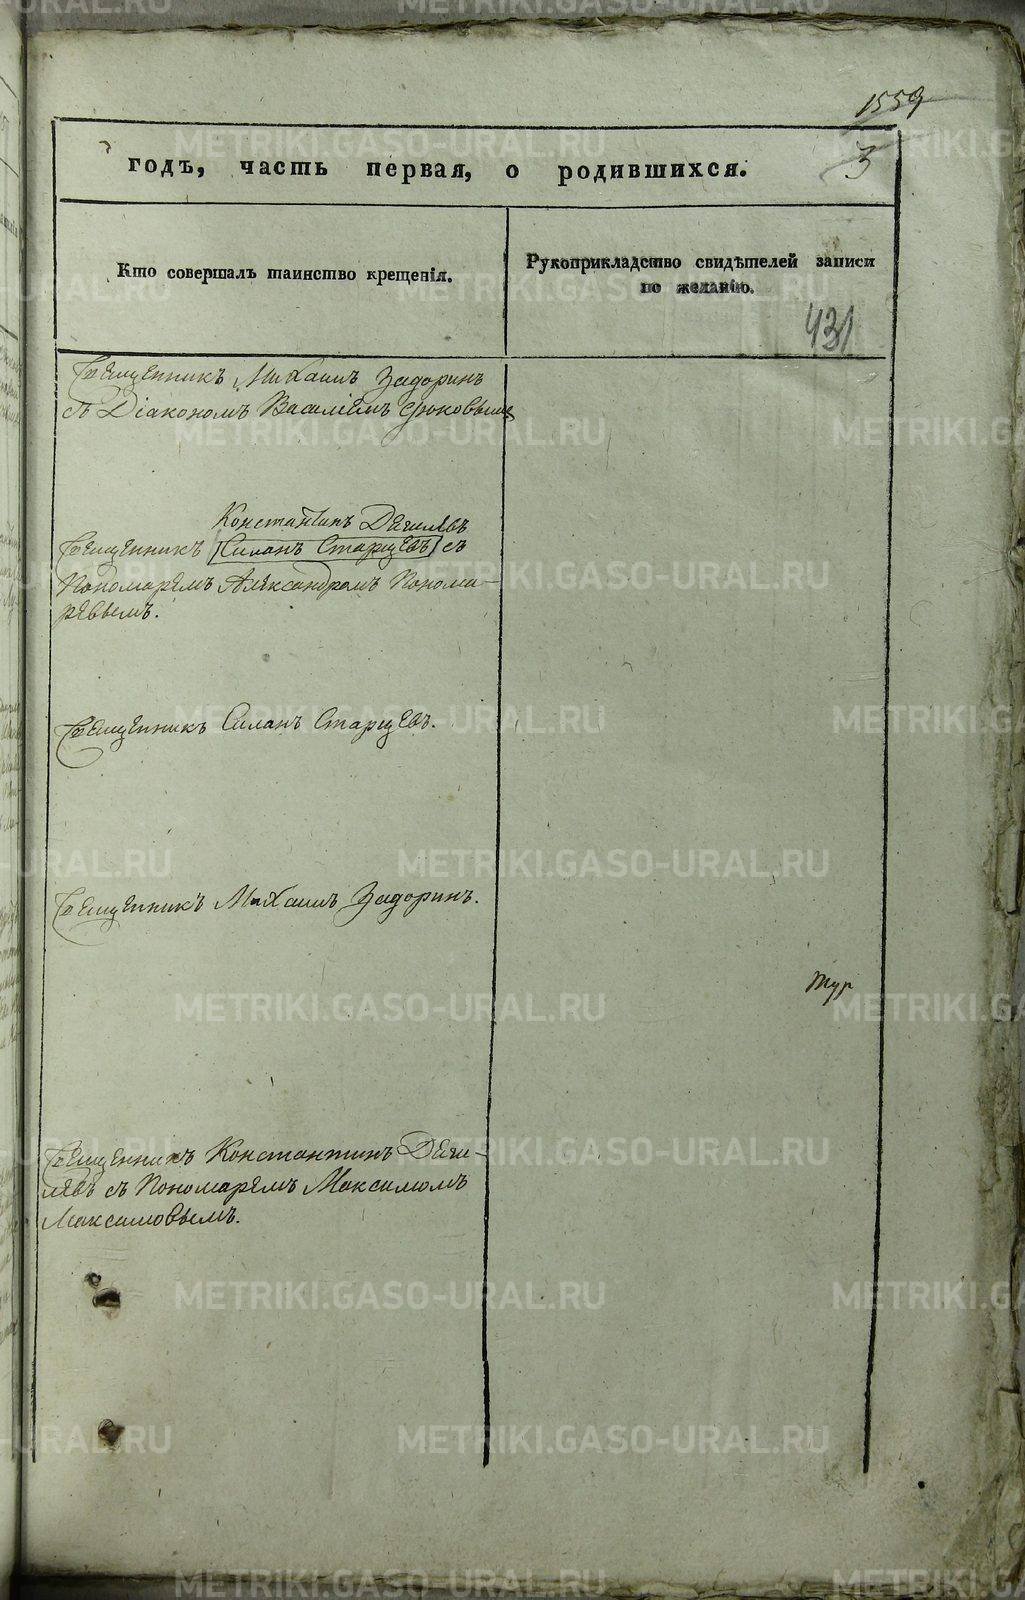 1559
3
годъ, часть первая, о родившихся.
Кто совершалъ таинство крещенія.
Рукоприкладство свидѣтелей записи
по желанію.
431
Священникъ Михаилъ Задоринъ
съ Діакономъ Василіемъ
Константинъ Дягилевъ
Священникъ Силанъ Старцевъ съ
Пономаремъ Александромъ Понома-
ревымъ.
Священникъ Силанъ Старцевъ.
Священникъ Михаилъ Задоринъ.
Тур
Священникъ Константинъ Дяги-
левъ съ Пономаремъ Максимомъ
Максимовымъ.
METRIKI.GASO-URAL.RU